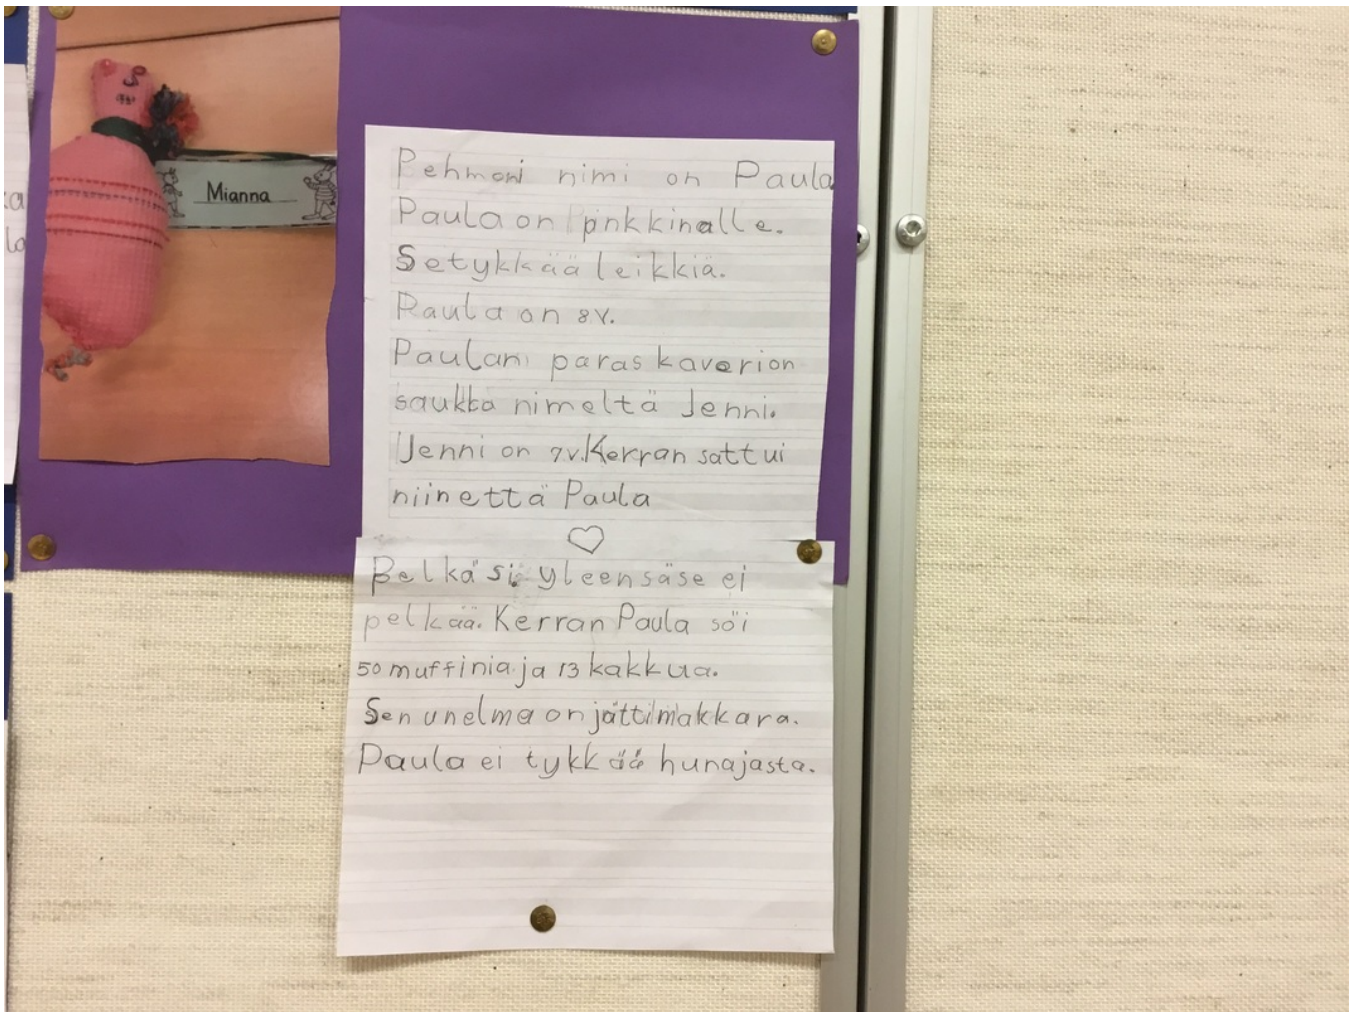 Mianna
Pehmoni nimi on Paula
Paula on pinkkinalle.
Setykkää leikkiä.
Paula on 8v.
Paulan paras kaverion
saukko nimeltä Jenni.
Jenni on 7v.Kerran sattui
niinettä Paula
Pelkäsi yleensäse ei
pelkää. Kerran Paula söi
50 muffinia ja 13 kakkua.
Sen unelma on jättimakkara.
Paula ei tykkää hunajasta.